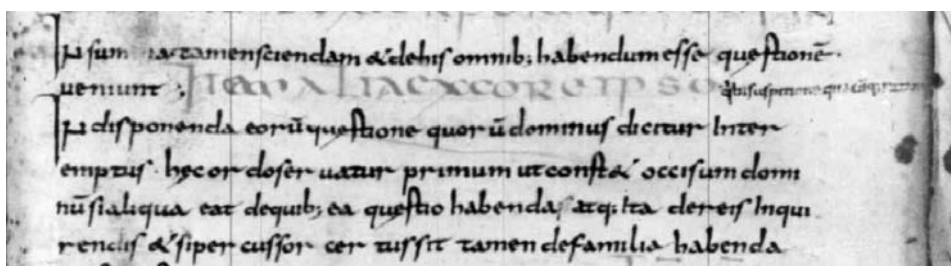 IN sum ma tamensciendam & dehis omnib; habendum esse quęstionē
ueniunt ; Item ALIA EX CORE IPSO
IN disponenda eorū quęstione quor ū dominus dicitur Inter
emptus . hęc or doser uatur primum ut const& occisum domi
nū sialiqua eat dequib; ea quęstio habenda; atq; Ita dereis Inqui
rendis & siper cussor cer tussit tamen defamilia habenda